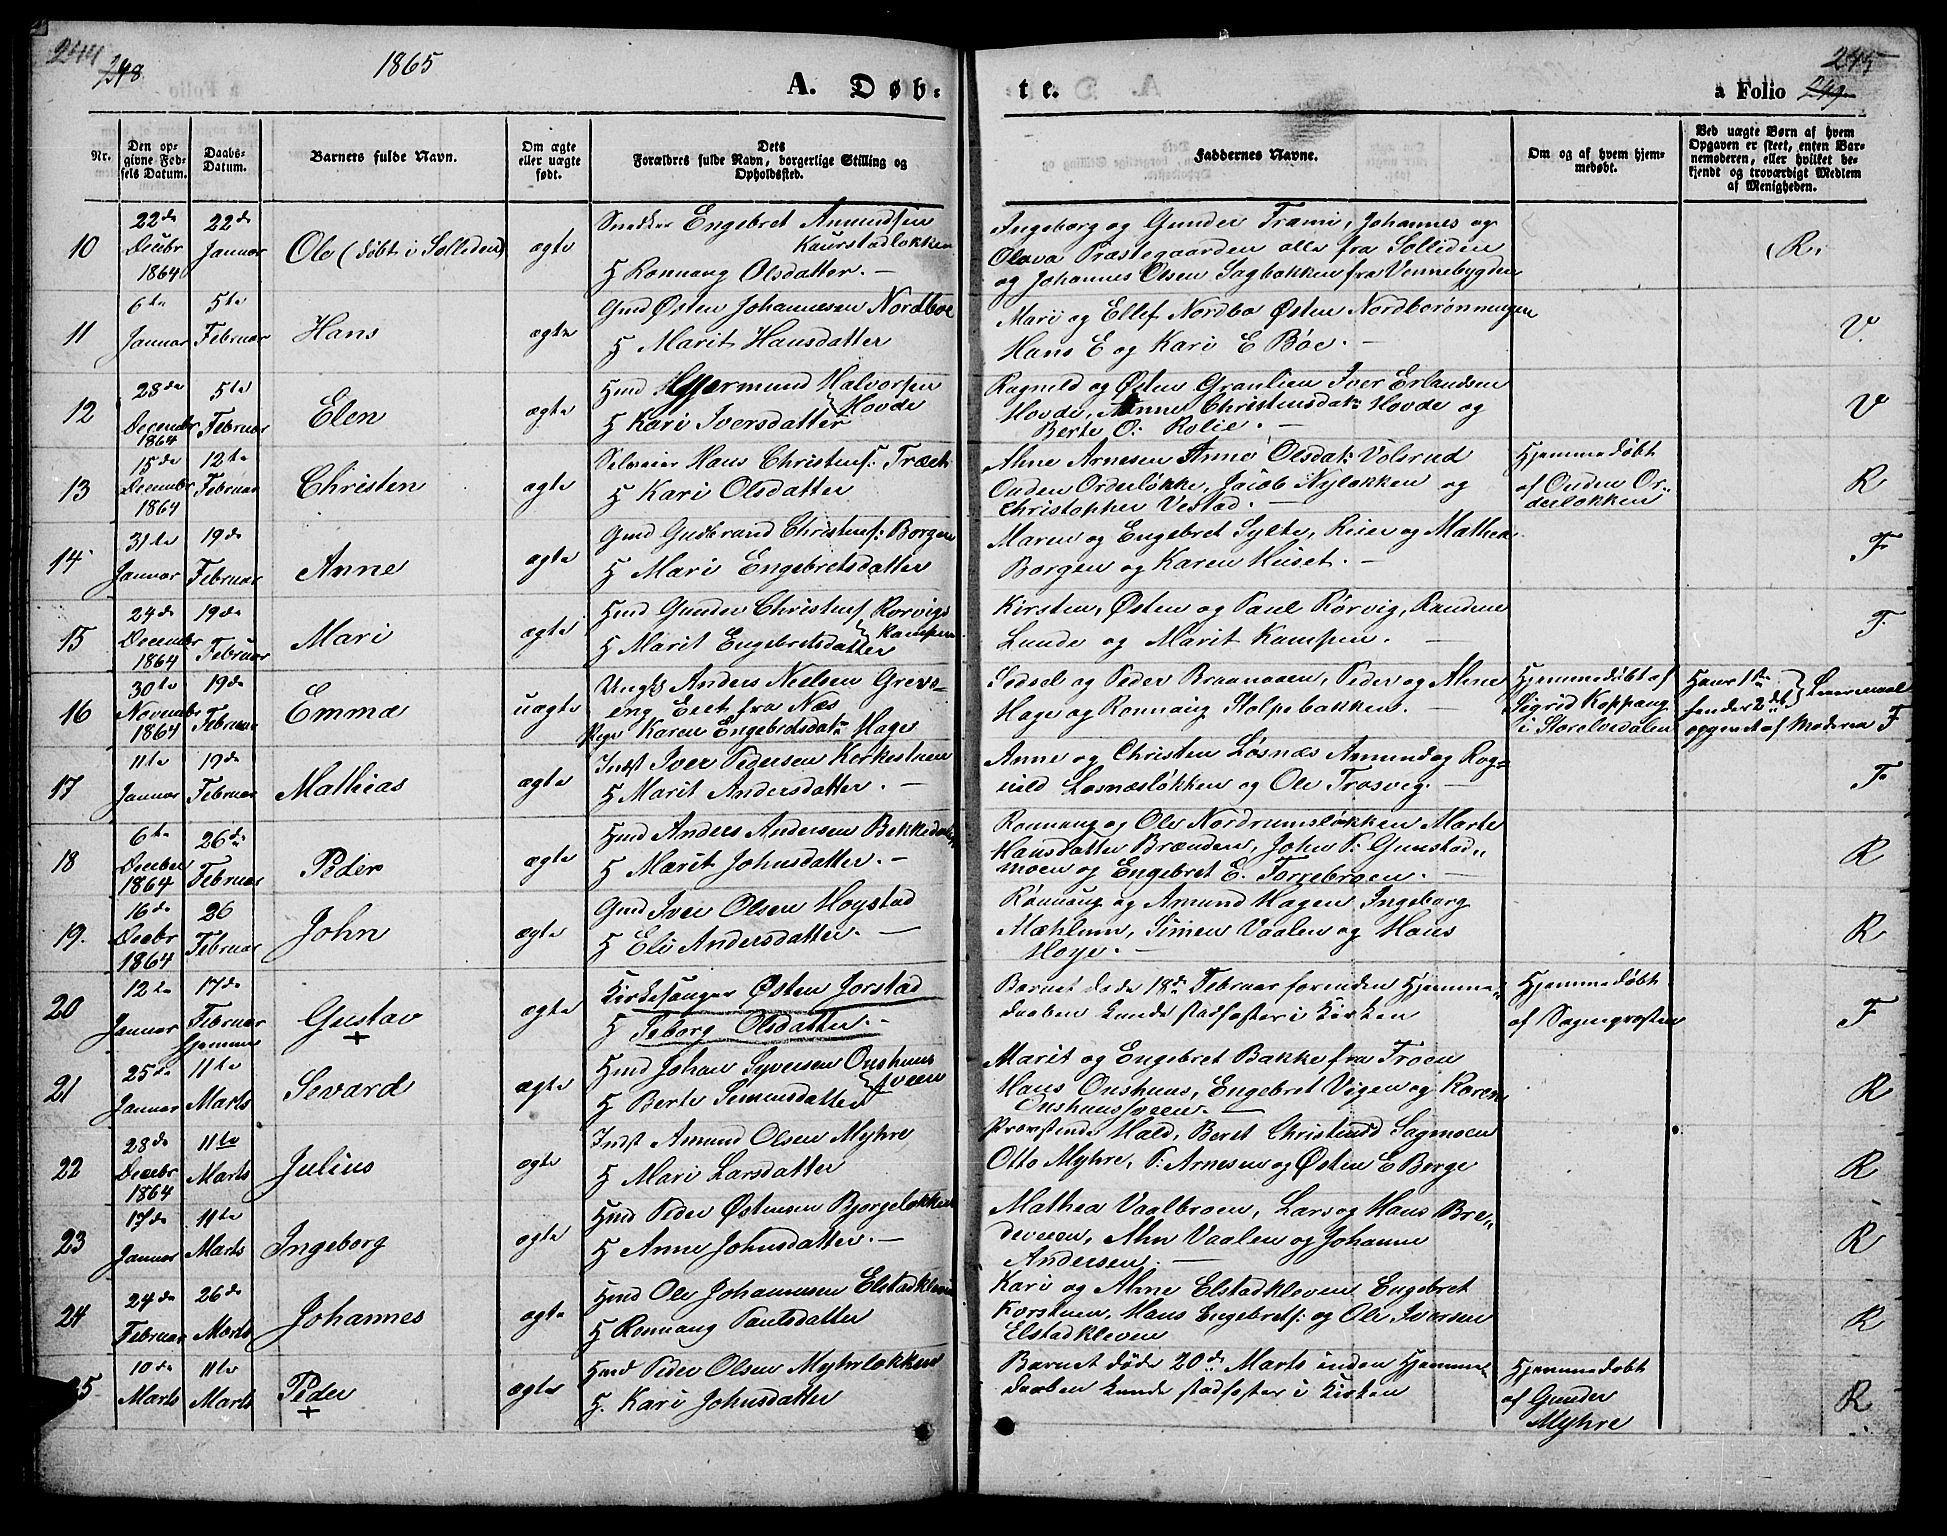 244
248
1865
245
A. Døb-
t e.
a Folio 249
Nr.
Den op-
givne Fød-
sels Datum.
Daabs-
Datum.
Barnets fulde Navn.
Om ægte
eller uægte
født.
Dets
Forældres fulde Navn, borgerlige Stilling og
Opholdssted.
Faddernes Navne.
Om og af hvem hjem-
medøbt.
Ved uægte Børn af hvem
Opgaven er skeet, enten Bar-
nemoderen, eller hvilket be-
kjendt og troværdigt Medlem
af Menigheden.
10
22de
Decbr
1864
22de
Januar
Ole (døbt i Solliden)
ægte
Snedker Engebret Amundsen
Kaurstadløkken
H Ronnaug Olsdatter. —
Ingeborg og Gunder Trami, Johannes og
Olava Præstegaarden alle fra Solliden
og Johannes Olsen Sagbakken fra Vennebygden
R.
11
6te
Januar
5te
Februar
Hans
ægte
Gmd Østen Johannesen Nordboe
H Marit Hansdatter
Mari og Ellef Nordbo Østen Nordborønningen
Hans E og Kari E Bøe. —
V.
12
28de
Decembr
1864
5te
Februar
Elen
ægte
Hmd Gjermund Halvorsen
Hovde
H Kari Iversdatter
Ragnild og Østen Granlien Iver Erlandsen
Hovde, Anne Christensdatr Hovde og
Berte O. Rolie. —
V
13
15de
Decembr
1864
12te
Februar
Christen
ægte
Selveier Hans Christens: Træet
H Kari Olsdatter
Ahne Arnesen Anne Olsdat: Volsrud
Ouden Orderløkke, Jacob Nyløkken og
Christopher Vestad. —
Hjemmedøbt
af Ouden Or-
derløkken
R
14
31te
Januar
19de
Februar
Anne
ægte
Gmd Gudbrand Christens: Borgen
H Mari Engebretsdatter
Maren og Engebret Sylte, Reier og Mathea
Borgen og Karen Huset. —
F
15
24de
Decembr
1864
19de
Februar
Mari
ægte
Hmd Gunder Christens Rorvigs
kampen
H Marit Engebretsdatter
Kirsten, Østen og Paul Rørvig, Randine
Lunde og Marit Kampen. —
F.
16
30te
Novembr
1864
19de
Februar
Emma
uægte
Ungk Anders Nielsen Grevs-
eng Eiet fra Næs
Pige Karen Engebretsdatr Hage
Sidsel og Peder Braanaaen, Peder og Ahne
Hage og Ronnaug Stolpebakken. —
Hjemmedøbt af
Sigrid Koppang
i Storelvedalen
Hans 1te
hendes 2det
Leiermaal
opgivet af Moderen F
17
11te
Januar
19de
Februar
Mathias
ægte
Indst Iver Pedersen Kirkestuen
H Marit Andersdatter. —
Anne og Christen Losnæs Amund og Rog-
nild Losnæsløkken og Ole Trosvig. —
F.
18
6te
Decbr
1864
26de
Februar
Peder
ægte
Hmd Anders Andersen Bekkedalen
H Marit Johnsdatter. —
Ronnaug og Ole Nordrumsløkken Marte
Hansdatter Brænden, John P. Gunstad-
moen og Engebret E. Forrebroen. —
R
19.
16de
Decbr
1864
26
Februar
John
ægte
Gmd Iver Olsen Hoystad
H Eli Andersdatter. —
Rønnaug og Amund Hagen Ingeborg
Mæhlum, Simen Vaalen og Hans
Hoye. —
R
20
12te
Januar
17de
Februar
hjemme
Gustav
+
ægte
Kirkesanger Østen Jorstad
H Seborg Olsdatter. —
Barnet døde 18de Februar forinden Hjemme-
daaben kunde stadfæstes i Kirken
Hjemmedøbt
af Sognepræsten
F
21
25de
Januar
11te
Marts
Sevard
ægte
Hmd Johan Syversen Onshuus
sveen
H Berte Simensdatter
Marit og Engebret Bakke fra Troen
Hans Onshuus, Engebret Vigen og Karen
Onshuussveen. —
R
22
28de
Decbr
1864
11te
Marts
Julius
ægte
Indst Amund Olsen Myhre
H Mari Larsdatter
Provstinde Hald, Beret Christensd Sagmoen
Otto Myhre, P: Arnesen og Østen E Berge
R
23
17de
Januar
11te
Marts
Ingeborg
ægte
Hmd Peder Østensen Bjorgeløkken
H Anne Johnsdatter. —
Mathea Vaalbroen, Lars og Hans Bre-
deveien, Ahn Vaalen og Johanne
Andersen. —
R
24
24de
Februar
26de
Marts
Johannes
ægte
Hmd Ole Johannesen Elstadkleven
H Ronnaug Paulsdatter
Kari og Ahne Elstadkleven Engebret
Korstuen, Hans Engebrets: og Ole Iversen
Elstadkleven
R
25
10de
Marts
11te
Marts
Peder
+
ægte
Hmd Peder Olsen Myhrløkken
H. Kari Johnsdatter
Barnet døde 20de Marts inden Hjemme-
daaben kunde stadfæstes i Kirken
Hjemmedøbt
af Gunder
Myhre
R